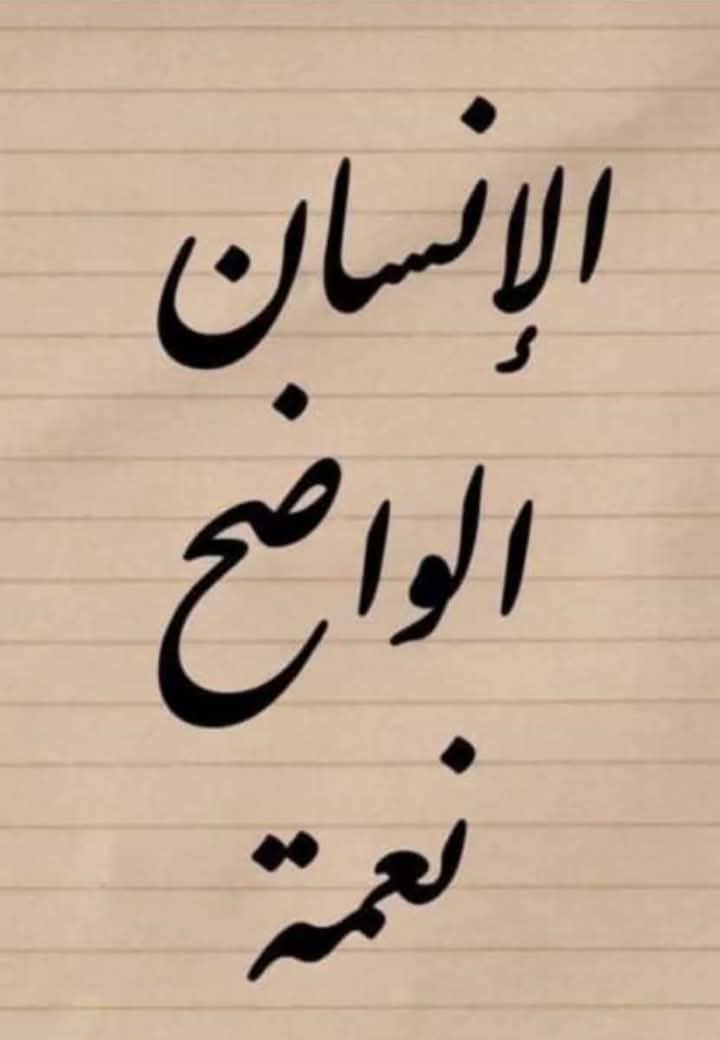 الإنسان
الواضح
نعمة